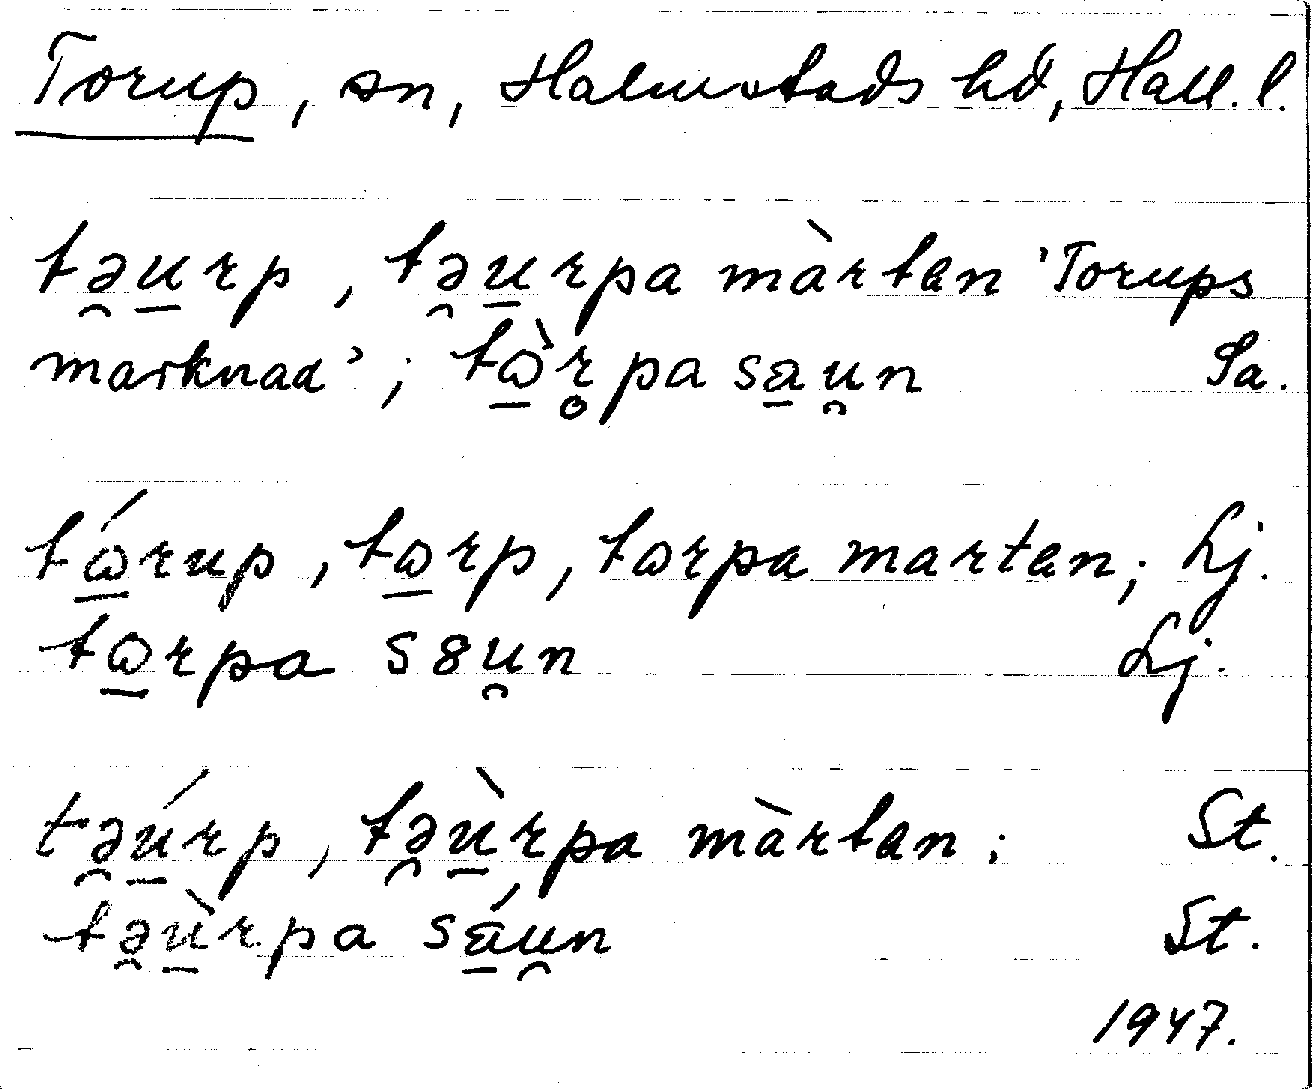 Torup, sn, Halmstads hd, Hall. l.
tə̯u̱rp, tə̯u̱rpa màrtən 'Torups
marknad'; tɷ̱̀r̥pa sa̱u̯n Sa.
tɷ̱́rup, tɷ̱rp, tɷrpa martən; Lj.
tɷ̱rpa s8u̯n Lj.
tə̯ú̱rp, tə̯ù̱rpa màrtən; St.
tə̯ù̱rpa sá̱u̯n St.
1947.